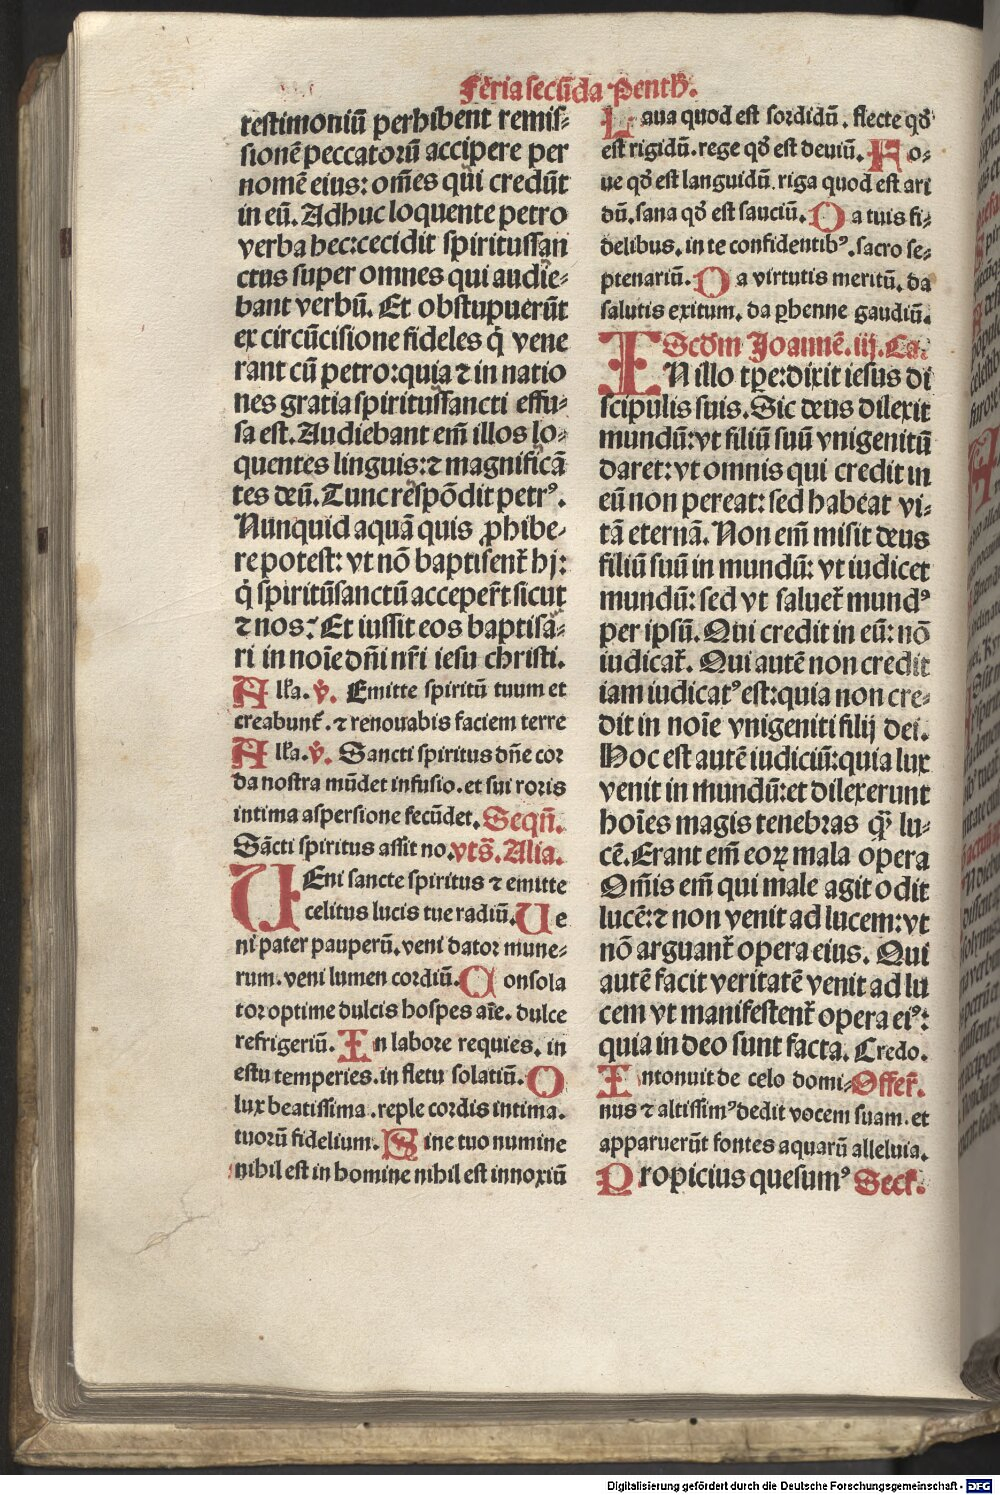 Feria secūda Penth̄.
testimoniū perhibent remis-
sionē peccatorū accipere per
nomē eius: om̄es qui credūt
in eū. Adhuc loquente petro
verba hec: cecidit spiritussan
ctus super omnes qui audie-
bant verbū. Et obstupuerūt
ex circūcisione fideles q̇ vene
rant cū petro: quia ⁊ in natio
nes gratia spiritussancti effu-
sa est. Audiebant em̄ illos lo-
quentes linguis: ⁊ magnificā
tes deū. Tunc respōdit petrꝰ.
Nunquid aquā quis ꝓhibe-
re potest: vt nō baptisent᷑ hj:
q̇ spiritūsanctū acceper̄t sicut
⁊ nos? Et iussit eos baptisa-
ri in noīe dn̄i nr̄i iesu christi.
Alla. ℣. Emitte spiritū tuum et
creabunt᷑. ⁊ renouabis faciem terre
Alla. ℣. Sancti spiritus dn̄e cor
da nostra mūdet infusio. et sui roris
intima aspersione fecūdet. Seqn̄.
Sācti spiritus assit no. vts̄. Alia.
UEni sancte spiritus ⁊ emitte
celitus lucis tue radiū. Ue
ni pater pauperū. veni dator mune-
rum. veni lumen cordiū. Consola
tor optime dulcis hospes aīe. dulce
refrigeriū. In labore requies. in
estu temperies. in fletu solatiū. O
lux beatissima. reple cordis intima.
tuorū fidelium. Sine tuo numine
nihil est in homine nihil est innoxiū
Laua quod est sordidū. flecte qd̓
est rigidū. rege qd̓ est deuiū. Fo-
ue qd̓ est languidū. riga quod est ari
dū. sana qd̓ est sauciū. Da tuis fi-
delibus. in te confidentibꝰ. sacro se-
ptenariū. Da virtutis meritū. da
salutis exitum. da ꝑhenne gaudiū.
Scd̄m Joannē. iij. Ca.
IN illo tp̄e: dixit iesus di
scipulis suis. Sic deus dilexit
mundū: vt filiū suū vnigenitū
daret: vt omnis qui credit in
eū non pereat: sed habeat vi-
tā eternā. Non em̄ misit deus
filiū suū in mundū: vt iudicet
mundū: sed vt saluet᷑ mundꝰ
per ipsū. Qui credit in eū: nō
iudicat᷑. Qui autē non credit
iam iudicatꝰ est: quia non cre-
dit in noīe vnigeniti filij dei.
Hoc est autē iudiciū: quia lux
venit in mundū: et dilexerunt
hoīes magis tenebras q̄ꝫ lu-
cē. Erant em̄ eoꝝ mala opera
Om̄is em̄ qui male agit odit
lucē: ⁊ non venit ad lucem: vt
nō arguant᷑ opera eius. Qui
autē facit veritatē venit ad lu
cem vt manifestent᷑ opera eiꝰ:
quia in deo sunt facta. Credo.
Intonuit de celo domi- Offer̄.
nus ⁊ altissimꝰ dedit vocem suam. et
apparuerūt fontes aquarū alleluia.
Propicius quesumꝰ Secr̄.
Digitalisierung gefördert durch die Deutsche Forschungsgemeinschaft - DFG